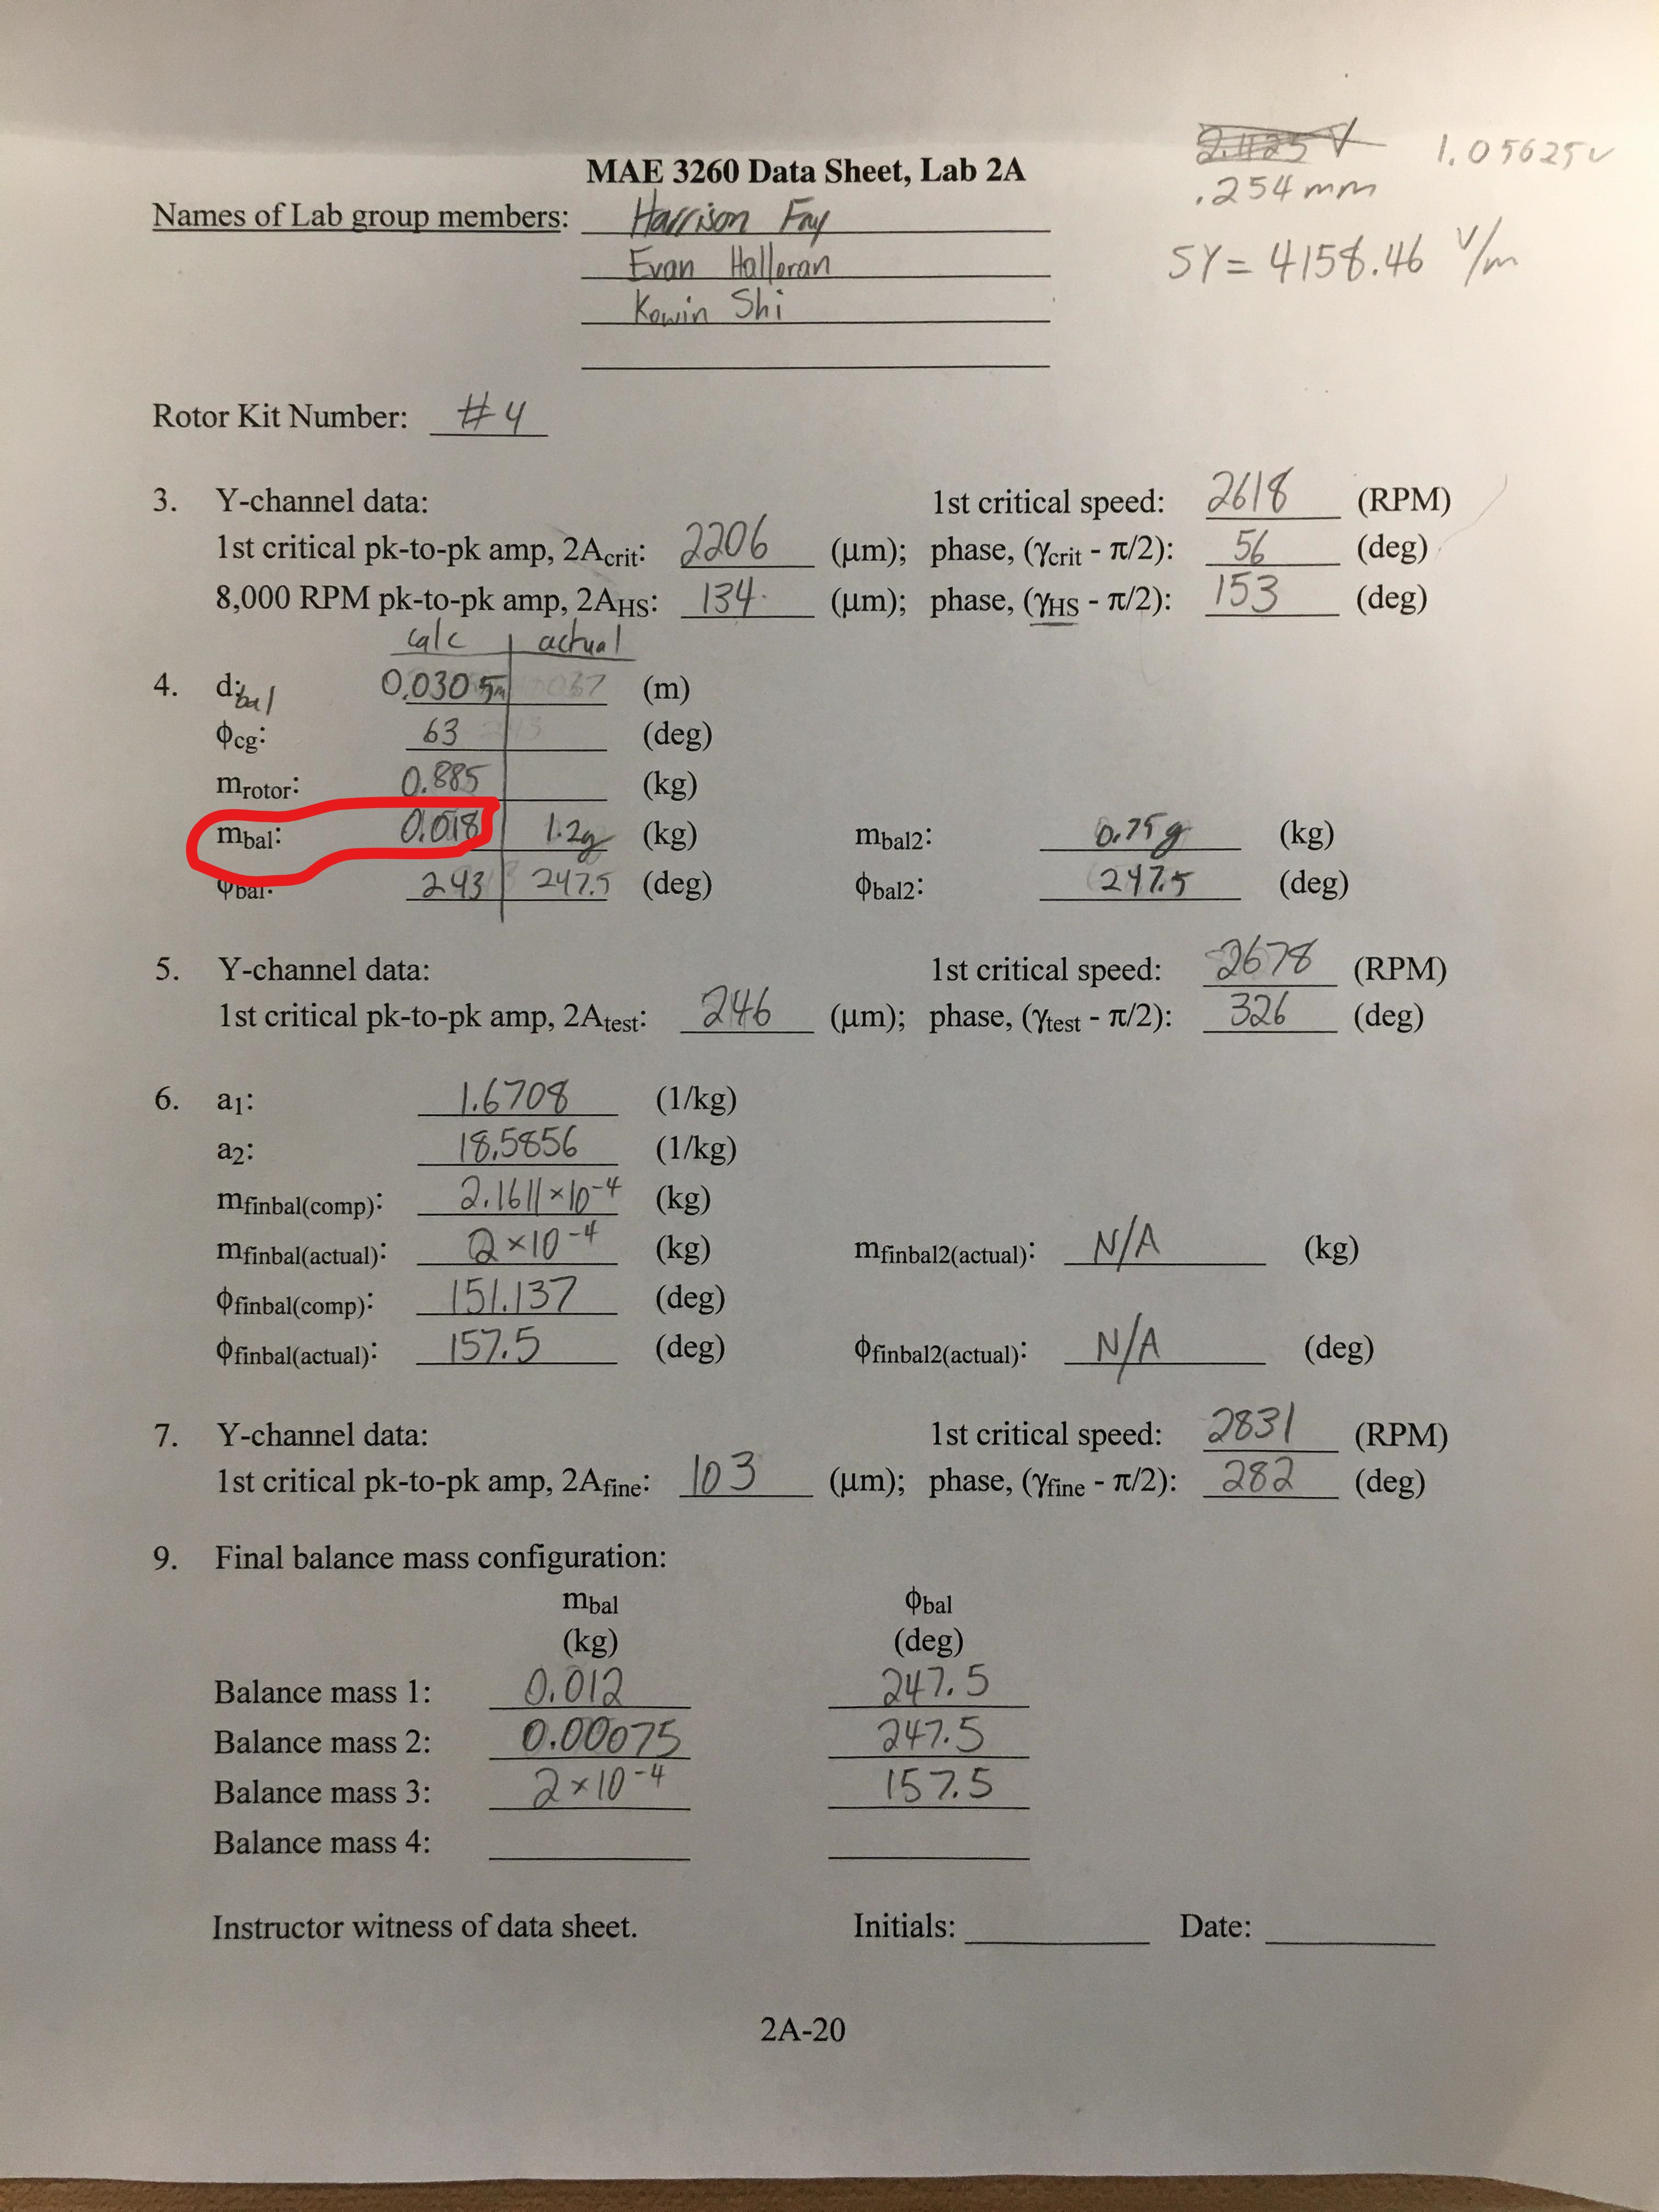 2.425 V 1.05625 V
.254 mm
MAE 3260 Data Sheet, Lab 2A
SY = 4158.46 V/m
Names of Lab group members: Harrison Fay
Evan Halloran
Kowin Shi
Rotor Kit Number: #4
3. Y-channel data: 1st critical speed: 2618 (RPM)
1st critical pk-to-pk amp, 2Acrit: 2206 (μm); phase, (γcrit - π/2): 56 (deg)
8,000 RPM pk-to-pk amp, 2AHS: 134 (μm); phase, (γHS - π/2): 153 (deg)
calc actual
4. dbal 0.0305m (m)
ϕcg: 63 (deg)
mrotor: 0.885 (kg)
mbal: 0.018 1.2g (kg) mbal2: 0.75g (kg)
ϕbal: 243 247.5 (deg) ϕbal2: 247.5 (deg)
5. Y-channel data: 1st critical speed: 2678 (RPM)
1st critical pk-to-pk amp, 2Atest: 246 (μm); phase, (γtest - π/2): 326 (deg)
6. a1: 1.6708 (1/kg)
a2: 18.5856 (1/kg)
mfinbal(comp): 2.1611×10-4 (kg)
mfinbal(actual): 2×10-4 (kg) mfinbal2(actual): N/A (kg)
ϕfinbal(comp): 151.137 (deg)
ϕfinbal(actual): 157.5 (deg) ϕfinbal2(actual): N/A (deg)
7. Y-channel data: 1st critical speed: 2831 (RPM)
1st critical pk-to-pk amp, 2Afine: 103 (μm); phase, (γfine - π/2): 282 (deg)
9. Final balance mass configuration:
mbal ϕbal
(kg) (deg)
Balance mass 1: 0.012 247.5
Balance mass 2: 0.00075 247.5
Balance mass 3: 2×10-4 157.5
Balance mass 4:
Instructor witness of data sheet. Initials: Date:
2A-20